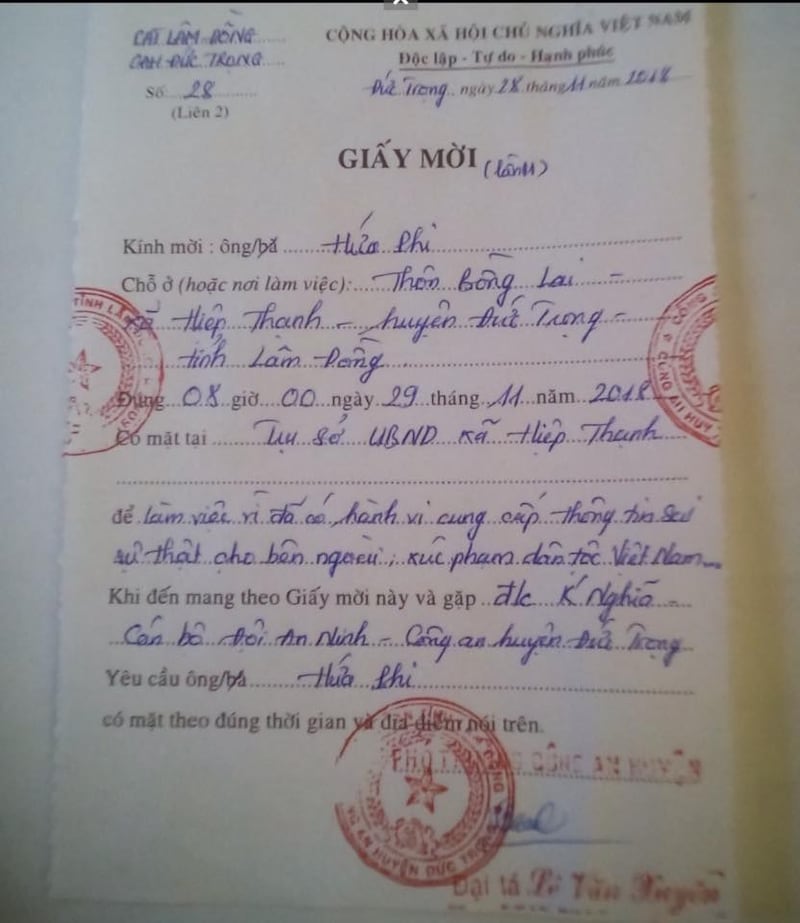 CAT LÂM ĐỒNG
CAH ĐỨC TRỌNG
Số 28
(Liên 2)
CỘNG HÒA XÃ HỘI CHỦ NGHĨA VIỆT NAM
Độc lập - Tự do - Hạnh phúc
Đức Trọng, ngày 28 tháng 11 năm 2018
GIẤY MỜI (lần 1)
Kính mời : ông/bà Hứa Phi
Chỗ ở (hoặc nơi làm việc): Thôn Bồng Lai -
xã Hiệp Thạnh - huyện Đức Trọng -
tỉnh Lâm Đồng
Đúng 08 giờ 00 ngày 29 tháng 11 năm 2018
Có mặt tại Trụ sở UBND xã Hiệp Thạnh
để làm việc vì đã có hành vi cung cấp thông tin sai
sự thật cho bên ngoài, xúc phạm dân tộc Việt Nam
Khi đến mang theo Giấy mời này và gặp đ/c K' Nghĩa -
Cán bộ Đội An Ninh - Công an huyện Đức Trọng
Yêu cầu ông/bà Hứa Phi
có mặt theo đúng thời gian và địa điểm nói trên.
CÔNG AN HUYỆN
CÔNG AN HUYỆN ĐỨC TRỌNG
Đại tá Lê Văn